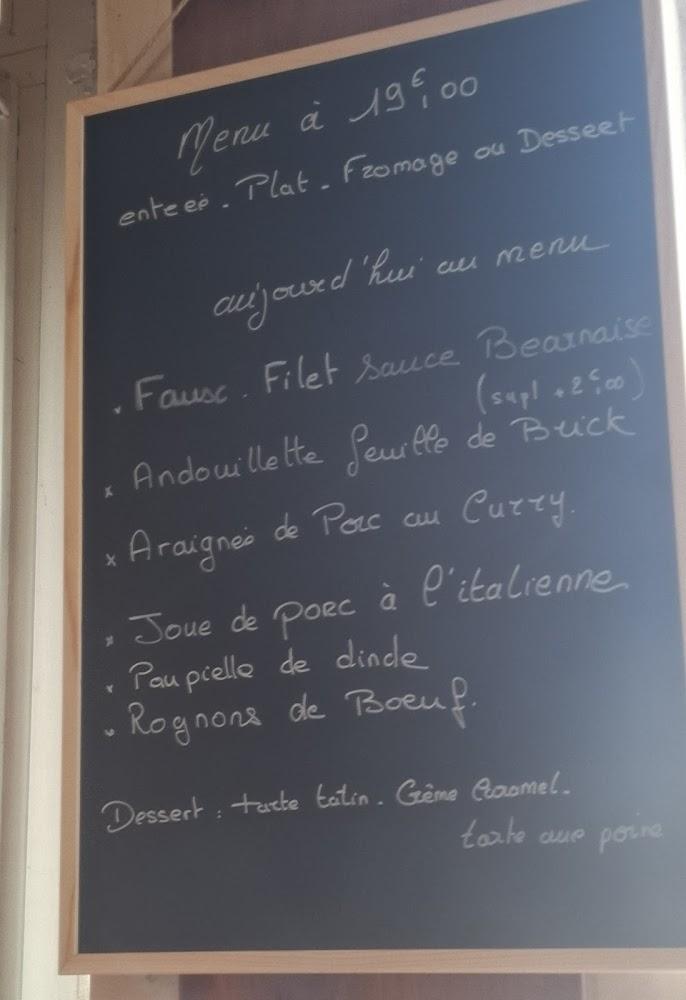 Menu à 19€,00
entrée. Plat. Fromage ou Dessert
aujourd'hui au menu
Faux. Filet sauce Bearnaise
(supl + 2€,00)
x Andouillette feuille de Brick
x Araignée de Porc au Curry.
x Joue de porc à l'italienne
x Paupielle de dinde
x Rognons de Boeuf.
Dessert : tarte tatin. Crème Caramel.
tarte aux poire